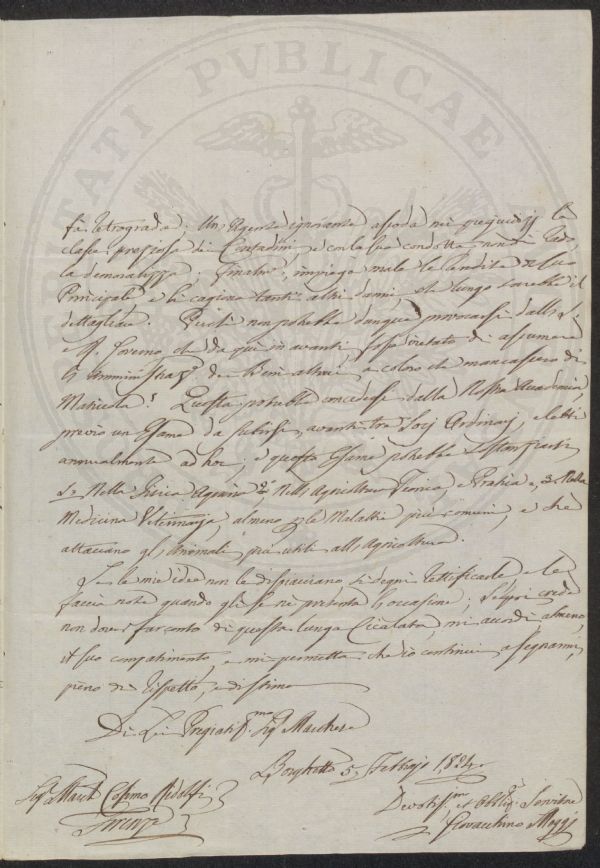 PROSPERITATI PVBLICAE
fà retrograda. Un Agente ignorante assoda nei pregiudizj la
classe preziosa dei Contadini, e con la sua condotta non di rado
la demoralizza. Finalm.e impiega male le rendite del suo
Principale, e li cagiona tanti altri danni, che lungo sarebbe il
dettagliare. Perchè non potrebbe dunque provocarsi dall'
I. e R. Governo che da qui in avanti fosse vietato di assumere
l'Amministraz.e de Beni altrui a coloro che mancassero di
Matricola? Questa potrebbe concedersi dalla Nostra Accademia,
previo un Esame da subirsi avanti tre Socj Ordinarj, eletti
annualmente ad hoc; e questo Esame potrebbe
Nella Fisica 2° Nell'Agricoltura Teorica, e Pratica e 3° Nella
Medicina Veterinaria, almeno p. le Malattie più comuni, e che
attaccano gl'Animali più utili all'Agricoltura.
Se le mie idee non le dispiacciano si degni rettificarle e le
faccia note quando gli se ne presenta l'occasione; Se poi crede
non dover far conto di questa lunga Cicalata, mi accordi almeno,
il suo compatimento, e mi permetta che io continui a segnarmi,
pieno di rispetto, e di stima
Di Lei Pregiatiss.mo Sig.e Marchese
Borghetto 5, Febbrajo 1824
Sig.e March. Cosimo Ridolfi
Firenze
Devotiss.mo et Obblig.o Servitore
Giovacchino